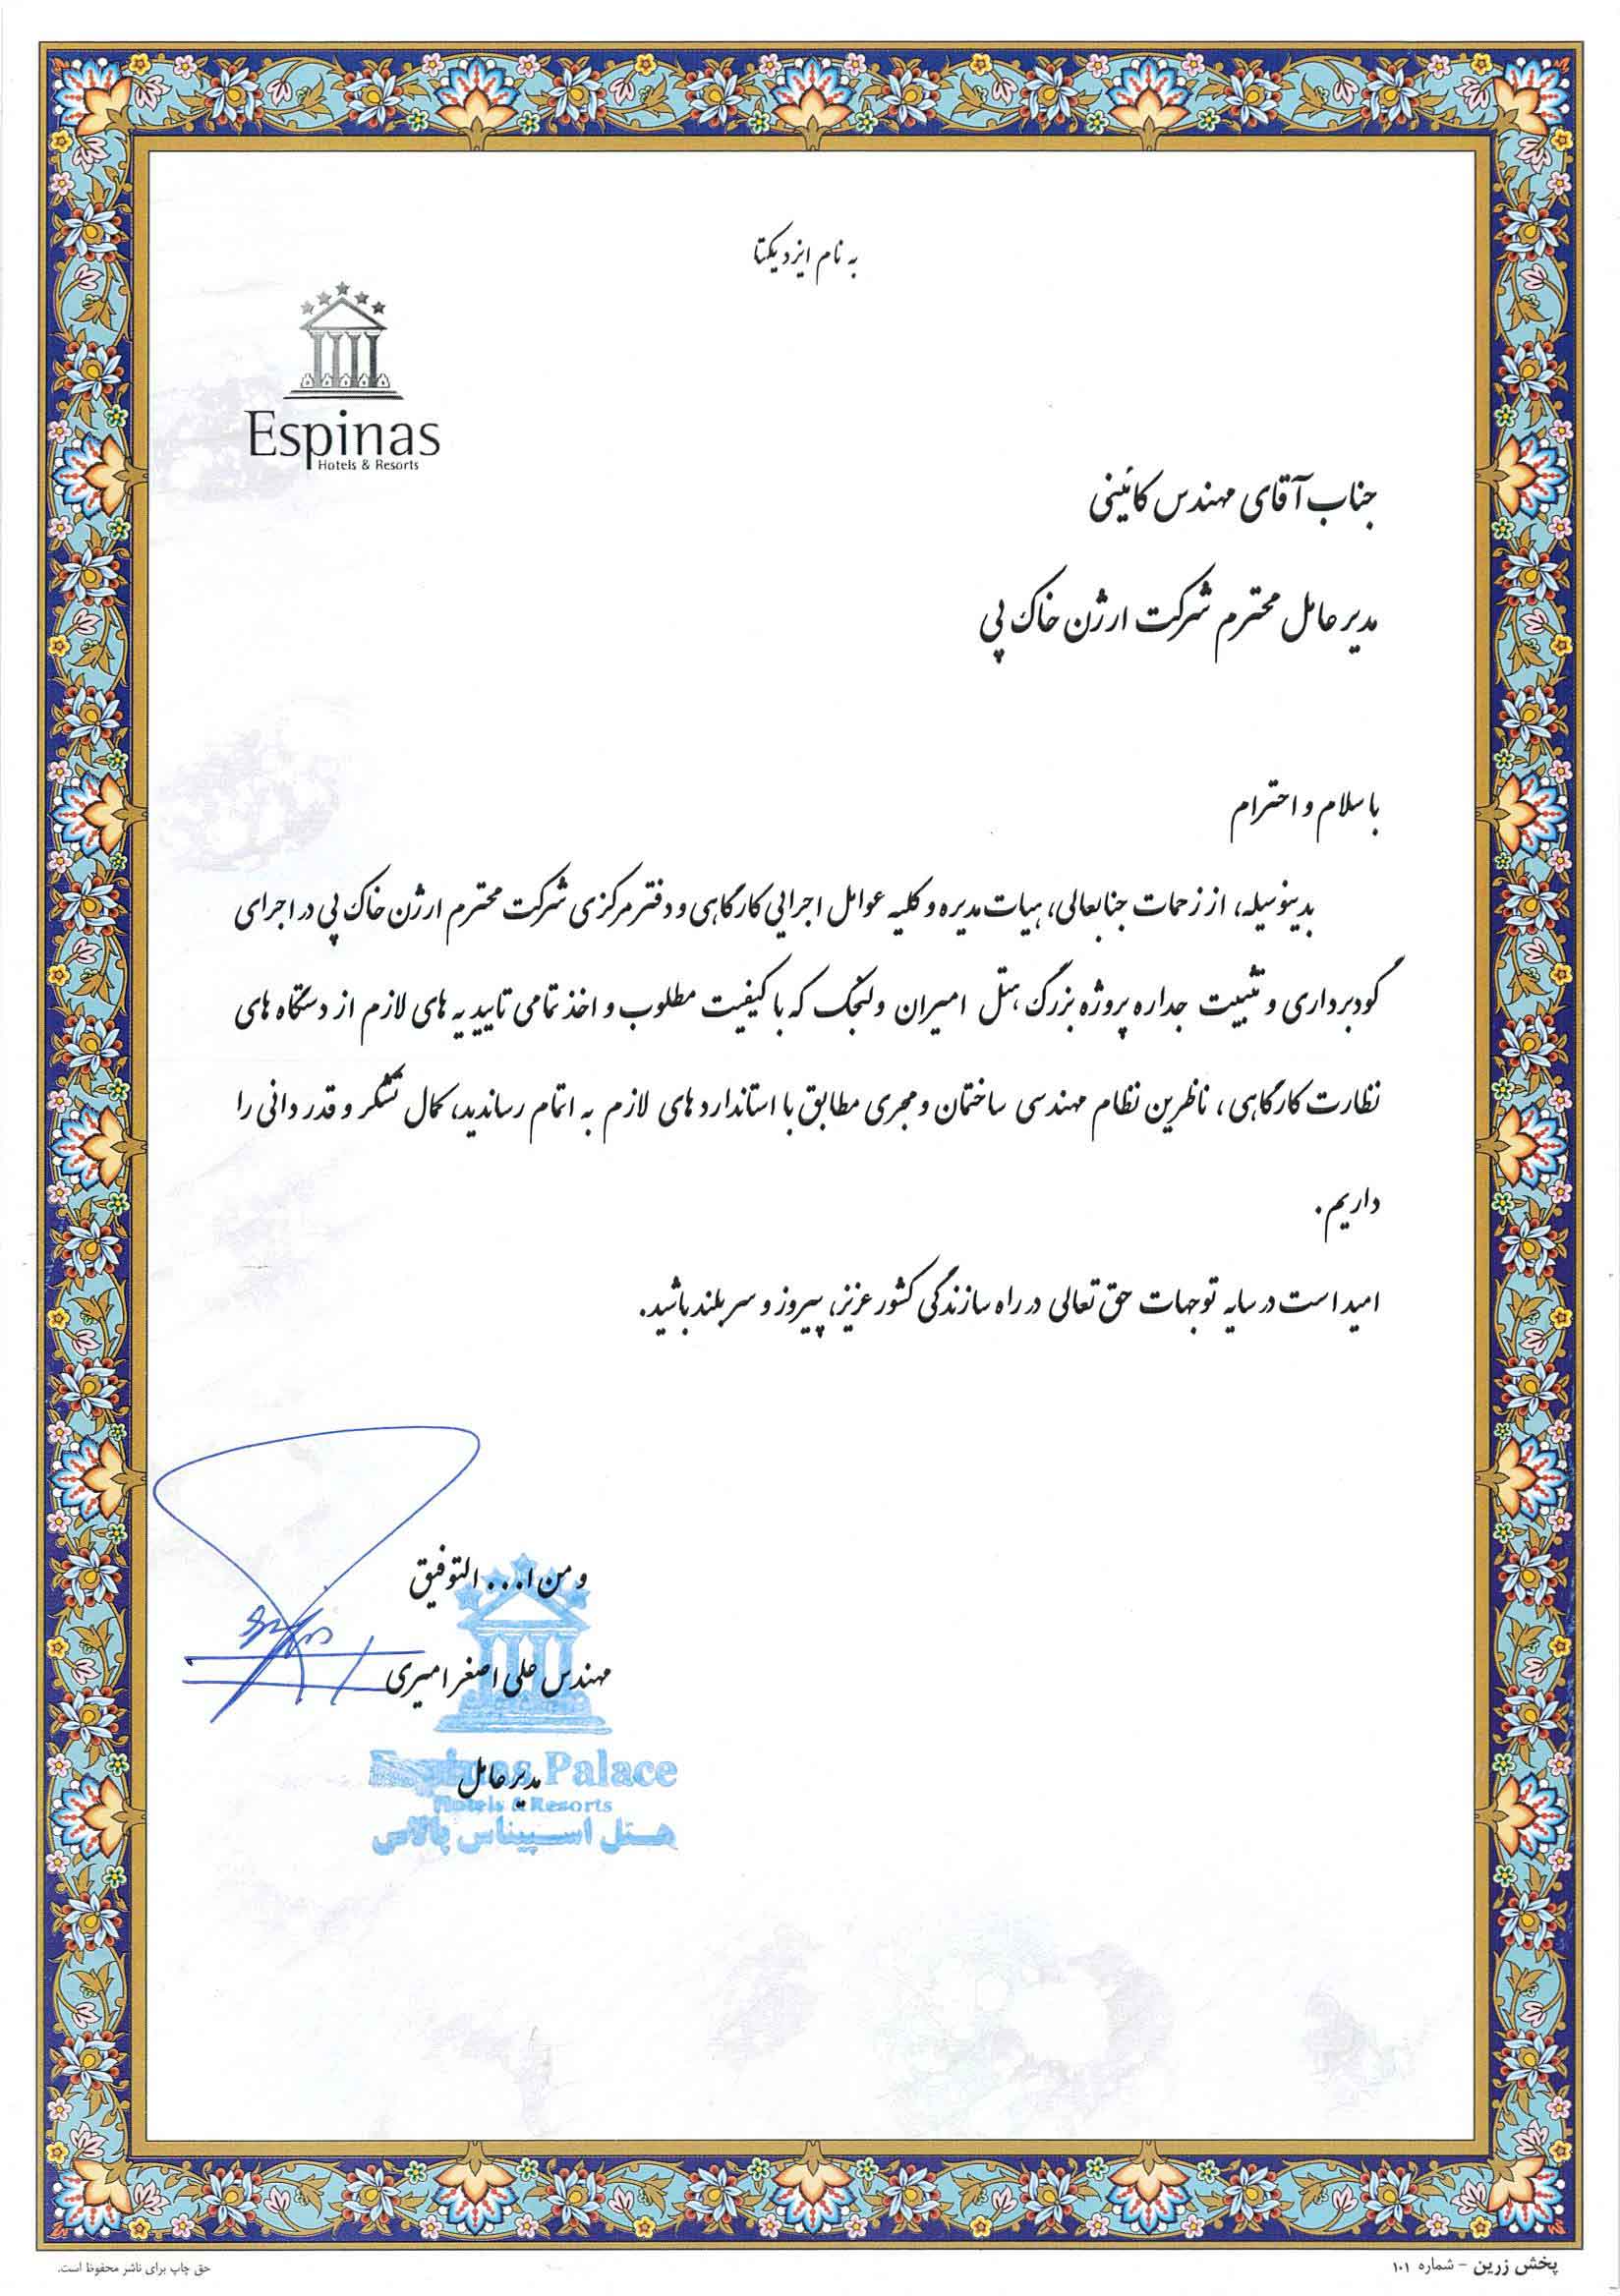 به نام ایزد یکتا
Espinas
Hotels & Resorts
جناب آقای مهندس کائینی
مدیر عامل محترم شرکت ارژن خاک پی
با سلام و احترام
بدینوسیله، از زحمات جنابعالی، هیات مدیره و کلیه عوامل اجرایی کارگاهی و دفتر مرکزی شرکت محترم ارژن خاک پی در اجرای
گودبرداری و تثبیت جداره پروژه بزرگ هتل امیران ولنجک که با کیفیت مطلوب و اخذ تمامی تاییدیه های لازم از دستگاه های
نظارت کارگاهی، ناظرین نظام مهندسی ساختمان و مجری مطابق با استانداردهای لازم به اتمام رساندید، کمال تشکر و قدردانی را
داریم.
امید است در سایه توجهات حق تعالی در راه سازندگی کشور عزیز، پیروز و سربلند باشید.
و من ا... التوفیق
مهندس علی اصغر امیری
مدیر عامل
Espinas Palace
Hotels & Resorts
هتل اسپیناس پالاس
پخش زرین - شماره ۱۰۱
حق چاپ برای ناشر محفوظ است.